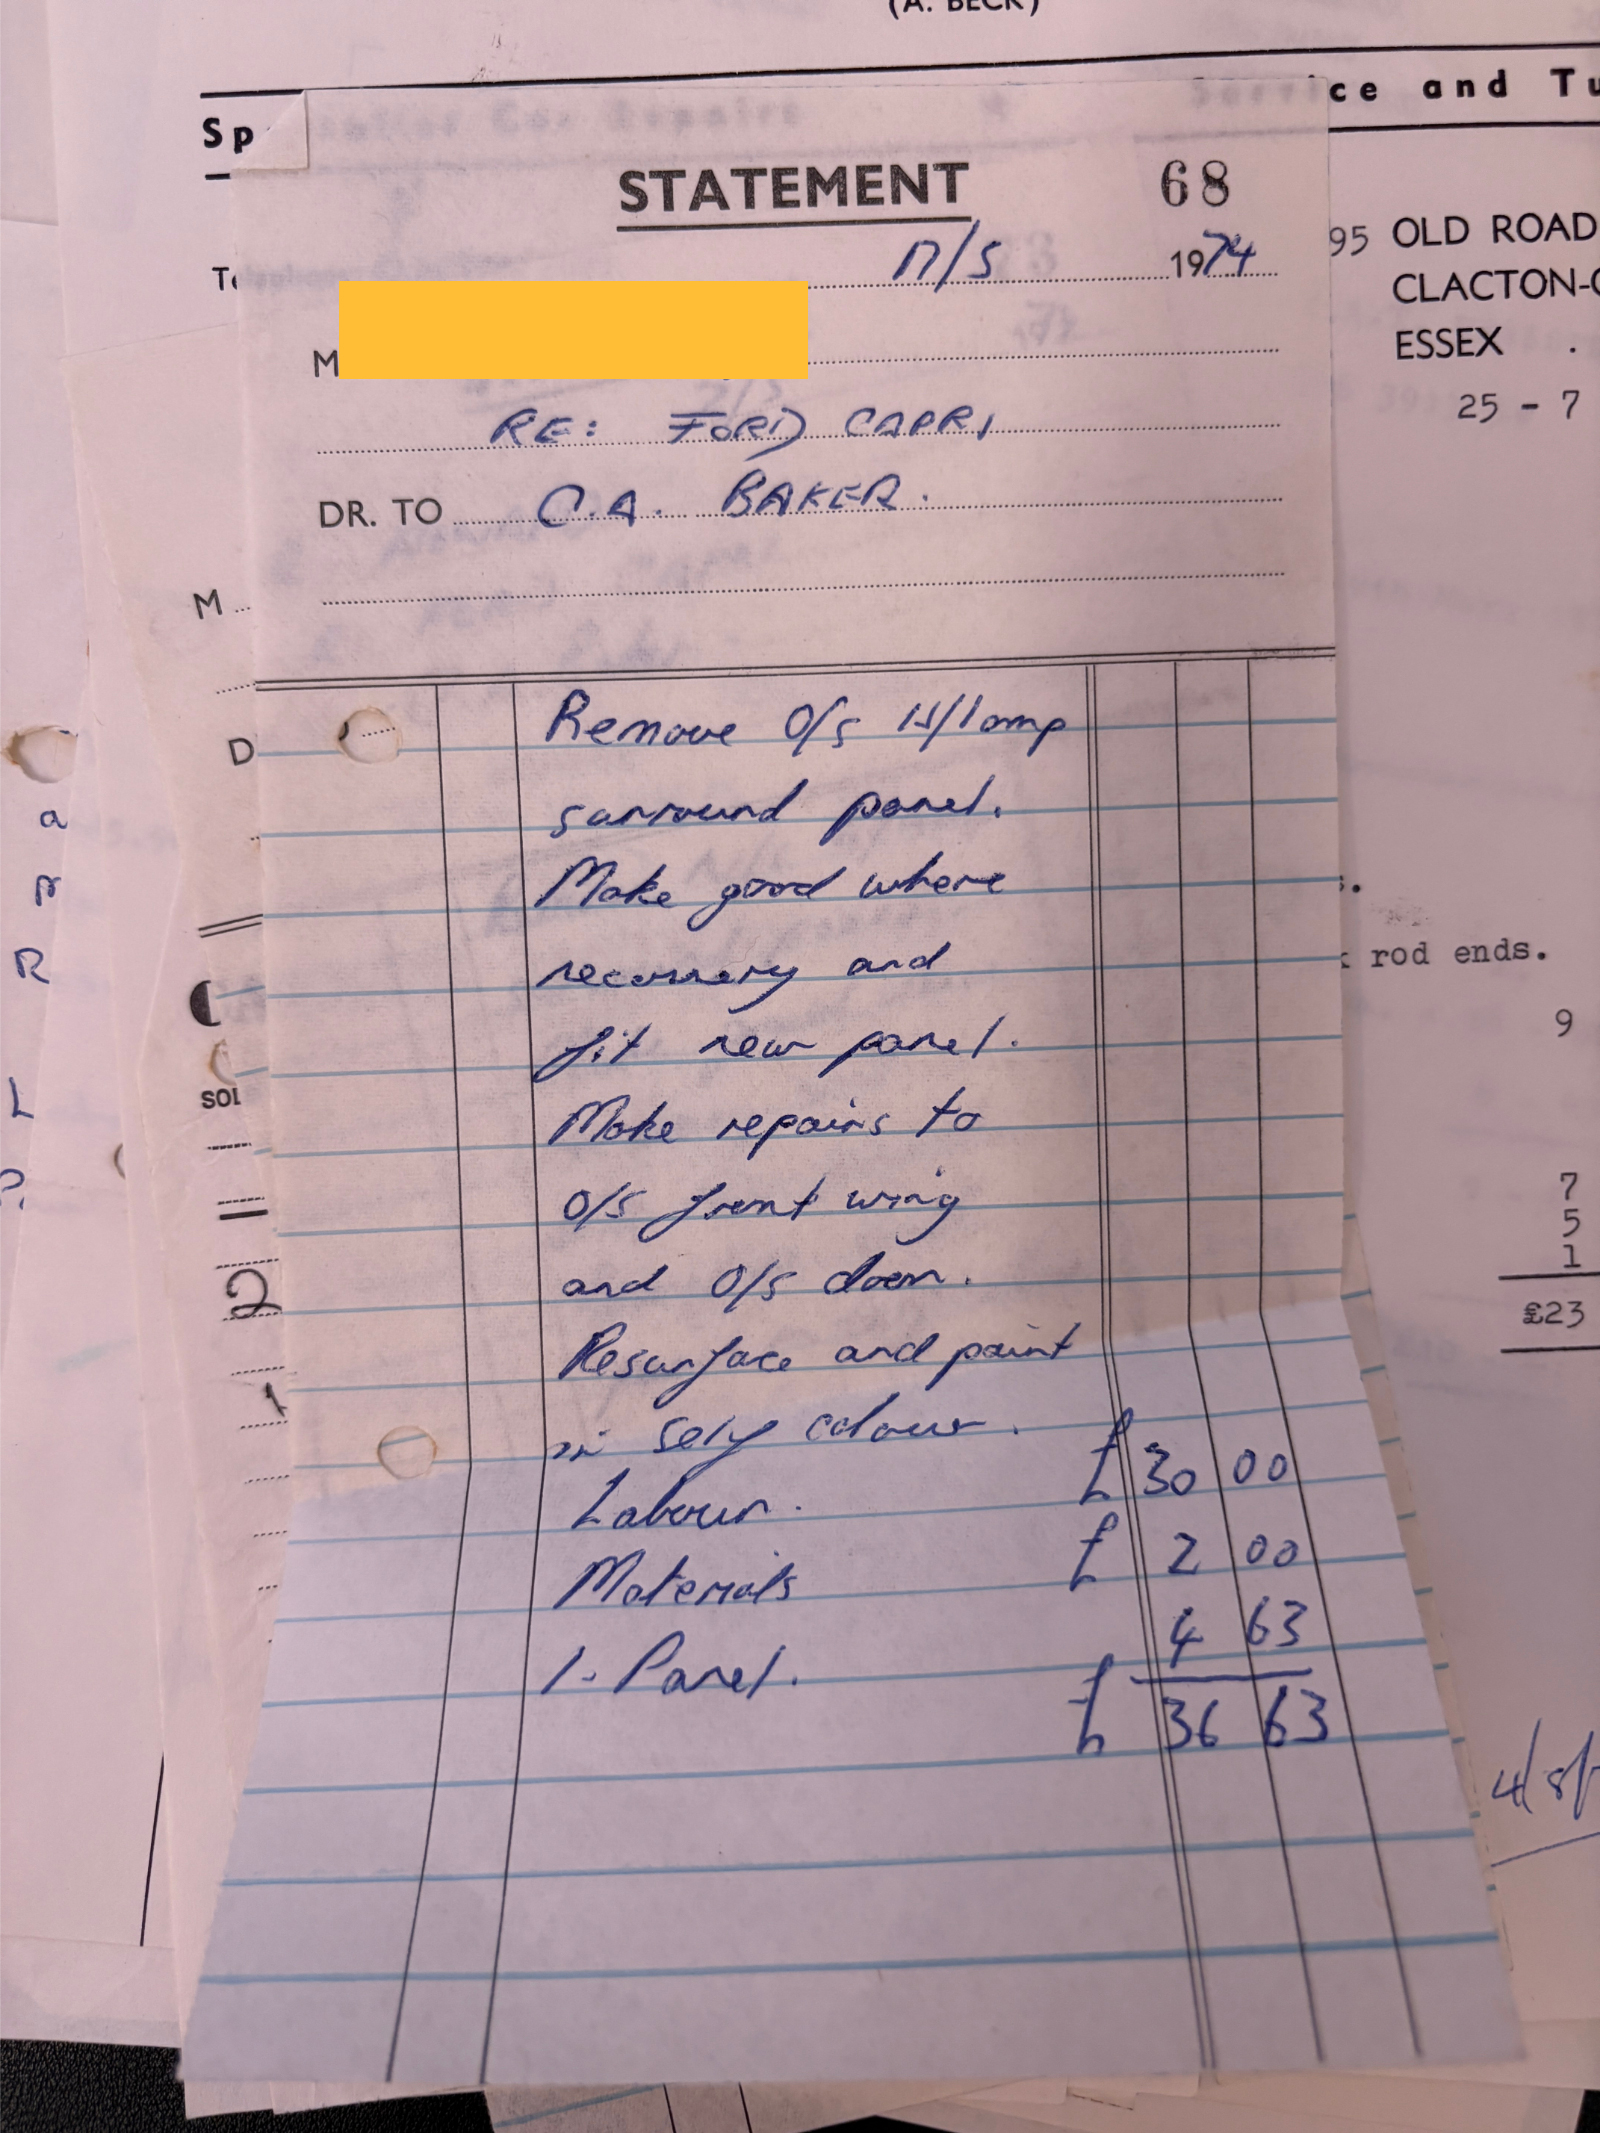 (A. BECK)
Sp
ce and Tu
STATEMENT 68
17/5 1974
95 OLD ROAD
CLACTON-
ESSEX .
25 - 7
M
RE: FORD CAPRI
DR. TO C.A. BAKER.
M
D
Remove O/S H/lamp
surround panel.
Make good where
necessary and
fit new panel.
Make repairs to
O/S front wing
and O/S door.
Resurface and paint
in self colour.
Labour. £30 00
Materials £ 2 00
1. Panel. 4 63
£ 36 63
rod ends.
9
7
5
1
£23
4/8/
a
R
L
2